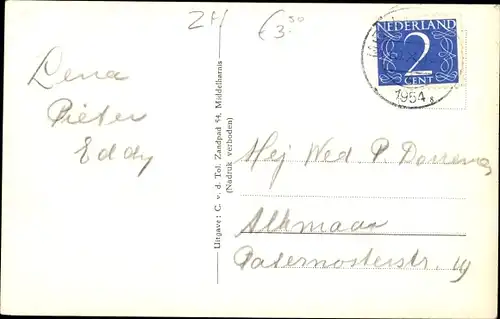 ZH
€3.50
NEDERLAND
2
CENT
1954
Lena
Pieter
Eddy
Uitgave: C. v. d. Tol. Zandpad 54. Middelharnis
(Nadruk verboden)
Wed. P.
Alkmaar
Paternosterstr. 19